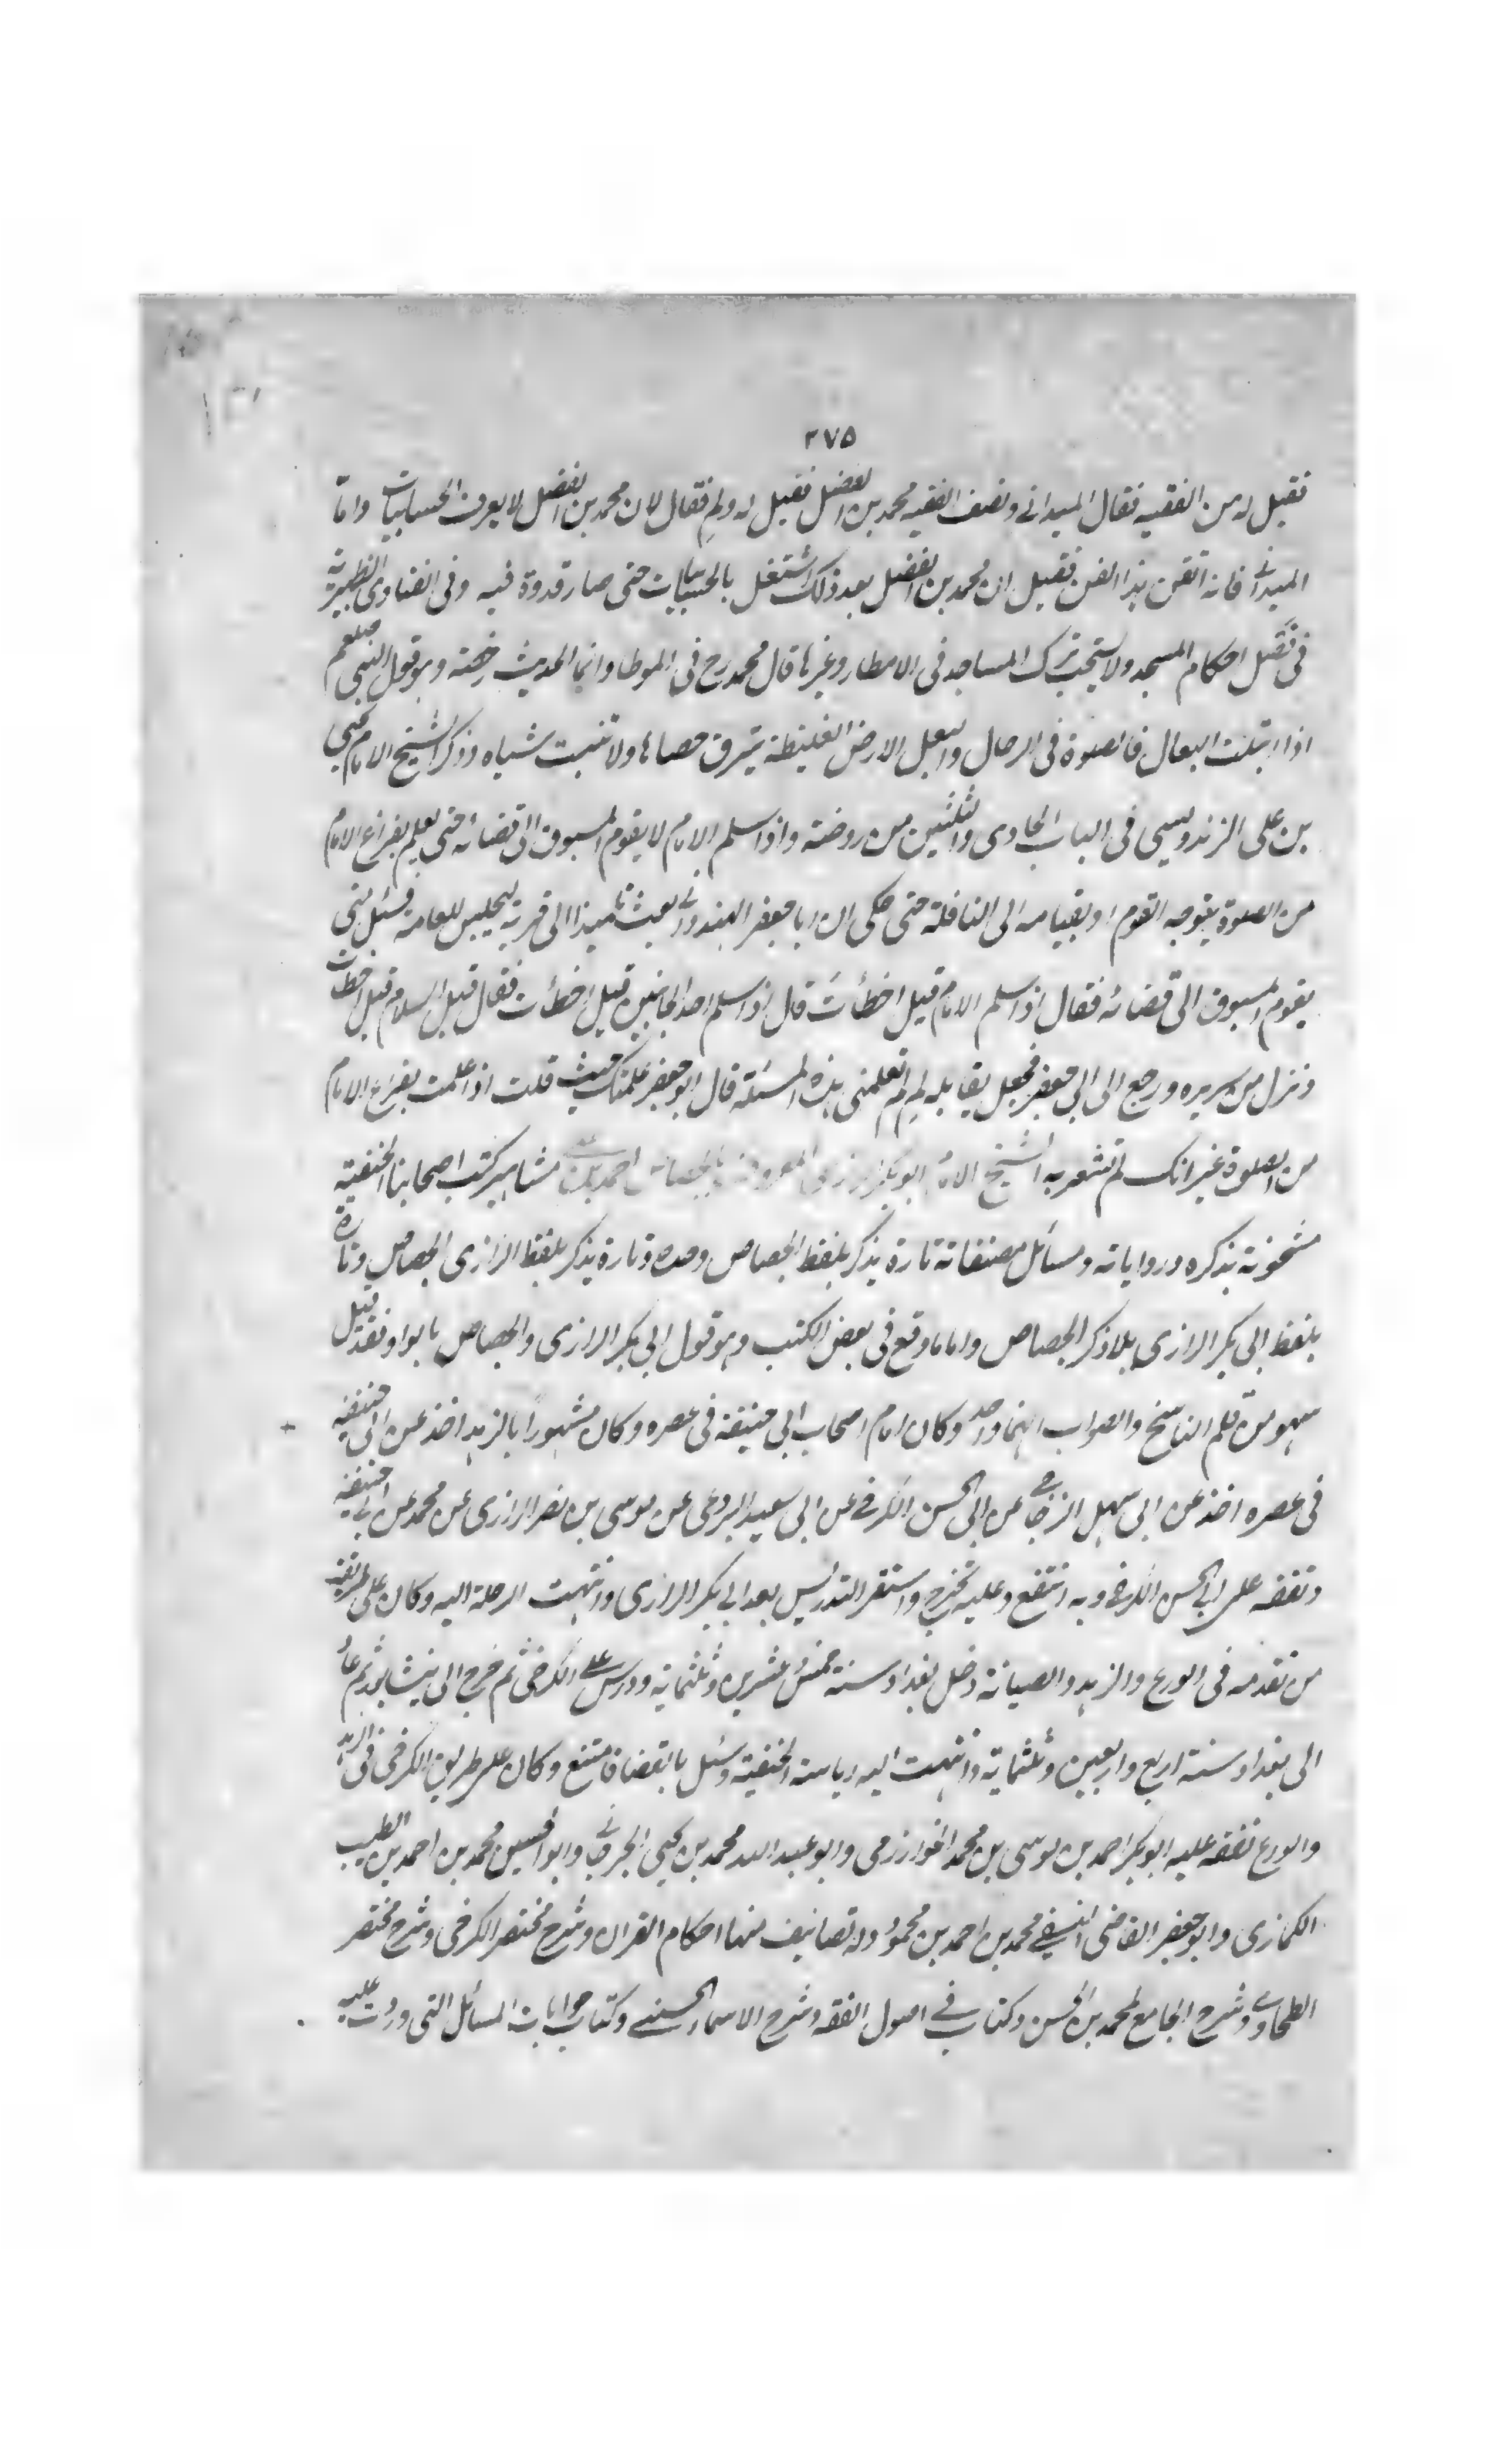 ٣٧٥
فقيل له من الفقيه فقال الميدانى ونصف الفقيه محمد بن الفضل فقيل له ولم فقال لان محمد بن الفضل لا يعرف الحسابيات واما
الميدانى فانه اتقن هذا الفن فقيل ان محمد بن الفضل بعد ذلك اشتغل بالحسابيات حتى صار قدوة فيه وفى الفتاوى الظهيرية
فى فصل احكام المسجد ولا يستحب ترك المساجد فى الامطار وغيرها قال محمد رح فى الموطا وانما الحديث رخصة وهو قول النبى صلعم
اذا ابتلت النعال فالصلوة فى الرحال والنعل الارض الغليظة يبرق حصاها ولا تنبت شياه وذكر الشيخ الامام يحيى
بن على الزندويسى فى الباب الحادى والثلثين من روضته واذا سلم الامام لا يقوم المسبوق الى قضائه حتى يعلم بفراغ الامام
من الصلوة بتوجه القوم او بقيامه الى النافلة حتى حكى ان ابا جعفر الهندوانى بعث تلميذا الى قرية ليجلس للعامة فسئل متى
يقوم المسبوق الى قضائه فقال اذا سلم الامام قيل اخطأت قال اذا سلم احد الجانبين قيل اخطأت فقال قبل السلام قيل اخطأت
ونزل من سريره ورجع الى ابى جعفر فجعل يقابله لم لم تعلمنى هذه المسئلة قال ابو جعفر علمتك حيث قلت اذا علمت بفراغ الامام
من الصلوة غير انك لم تشعر به الشيخ الامام ابو بكر الرازى المعروف بالجصاص احمد بن على مشاهير كتب اصحابنا الحنفية
مشحونة بذكره ورواياته ومسائل مصنفاته تارة يذكر بلفظ الجصاص وحده وتارة يذكر بلفظ الرازى الجصاص وتارة
بلفظ ابى بكر الرازى بلا ذكر الجصاص واما ما وقع فى بعض الكتب وهو قول ابى بكر الرازى والجصاص بالواو فقد قيل
سهو من قلم الناسخ والصواب انهما واحد وكان امام اصحاب ابى حنيفة فى عصره وكان مشهورا بالزهد اخذ عن ابى حنيفة
فى عصره اخذ عن ابى سهل الزجاجى عن ابى الحسن الكرخى عن ابى سعيد البردعى عن موسى بن نصر الرازى عن محمد عن ابى حنيفة
وتفقه على ابى الحسن الكرخى وبه انتفع وعليه تخرج واستقر التدريس بعد ابى بكر الرازى وانتهت الرحلة اليه وكان على طريقة
من تقدمه فى الورع والزهد والصيانة دخل بغداد سنة خمس وعشرين وثلثماية ودرس على الكرخى ثم خرج الى نيشابور ثم عاد
الى بغداد سنة اربع واربعين وثلثماية وانتهت اليه رياسة الحنفية وسئل بالقضا فامتنع وكان على طريق الكرخى فى الزهد
والورع تفقه عليه ابو بكر احمد بن موسى بن محمد الخوارزمى وابو عبد الله محمد بن يحيى الجرجانى وابو الحسين محمد بن احمد بن الطيب
الكمازى وابو جعفر القاضى النسفى محمد بن احمد بن محمود وله تصانيف منها احكام القران وشرح مختصر الكرخى وشرح مختصر
الطحاوى وشرح الجامع لمحمد بن الحسن وكتاب فى اصول الفقه وشرح الاسماء الحسنى وكتاب جوابات المسائل التى وردت عليه